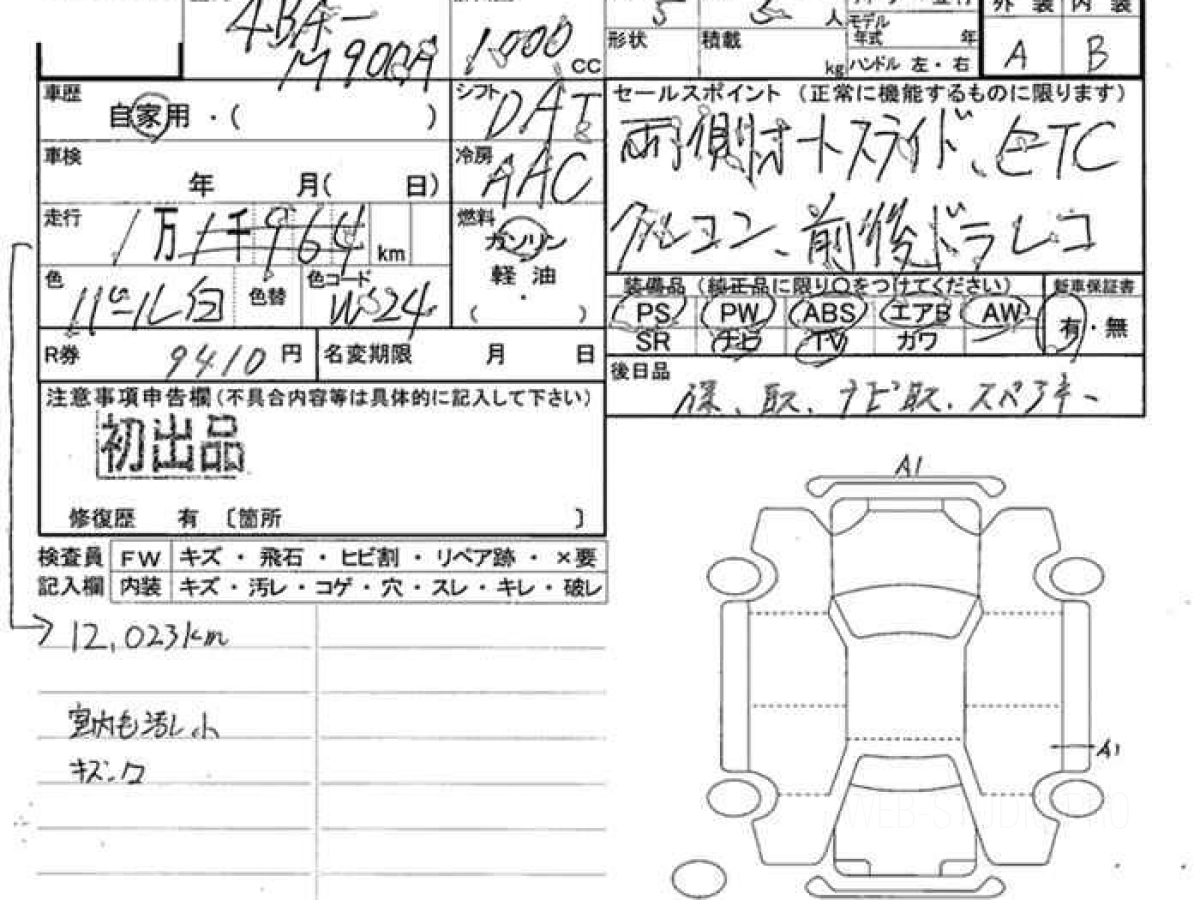 4BA-
M900A
1000
CC
5
5
人
モデル
年式
年
外装 内装
形状
積載
kg
ハンドル 左・右
A
B
車歴
自家用 ・( )
シフト
DAT
セールスポイント (正常に機能するものに限ります)
両側オートスライド、ETC
車検
年 月( 日)
冷房
AAC
走行
1万1千964 km
燃料
ガソリン
軽 油
・
( )
クルコン、前後ドラレコ
色
パール白
色替
色コード
W24
装備品(純正品に限り○をつけてください)
新車保証書
PS PW ABS エアB AW
有・無
SR ナビ TV カワ
R券
9410 円
名変期限 月 日
後日品
保、取、ナビ取、スペアキー
注意事項申告欄(不具合内容等は具体的に記入して下さい)
初出品
修復歴 有 〔箇所 〕
検査員
FW
キズ ・ 飛石 ・ ヒビ割 ・ リペア跡 ・ ×要
記入欄
内装
キズ・汚レ・コゲ・穴・スレ・キレ・破レ
12,023km
A1
A1
WEB-STUDIO.PRO